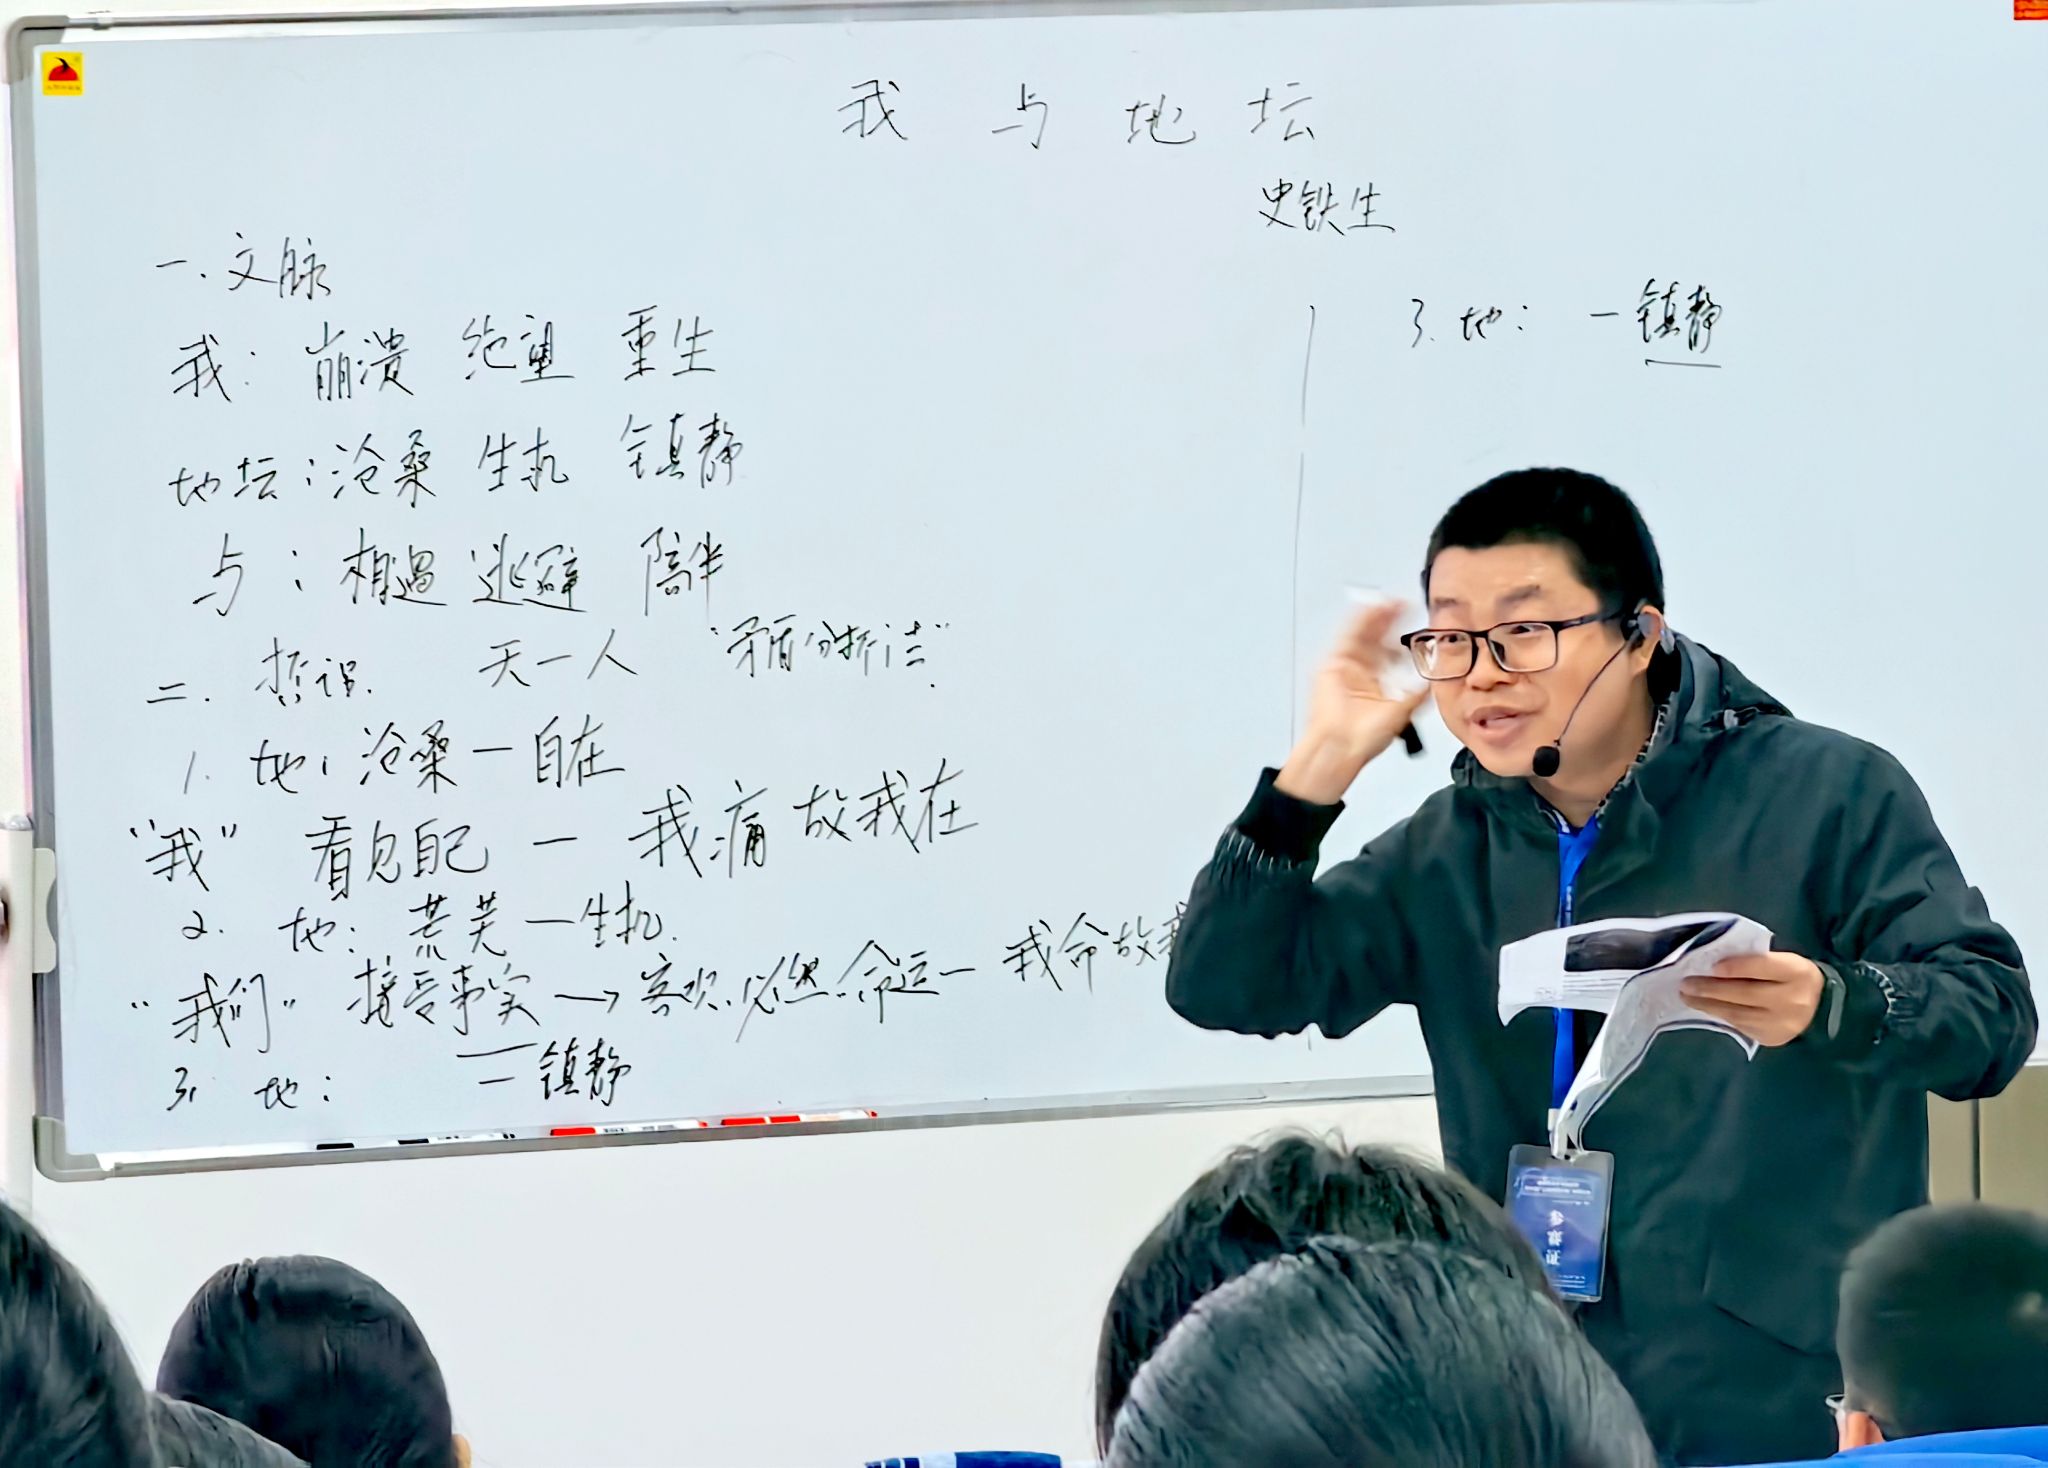 我与地坛
史铁生
一.文脉
我：崩溃 绝望 重生
地坛：沧桑 生机 镇静
与：相遇 逃避 陪伴
二.哲识. 天一人 “矛盾分析法”
1.地：沧桑—自在
“我” 看见自己—我痛故我在
2.地：荒芜—生机.
“我们” 接受事实→客观.必然.命运—我命故我
3.地： —镇静
3.地： —镇静
参赛证